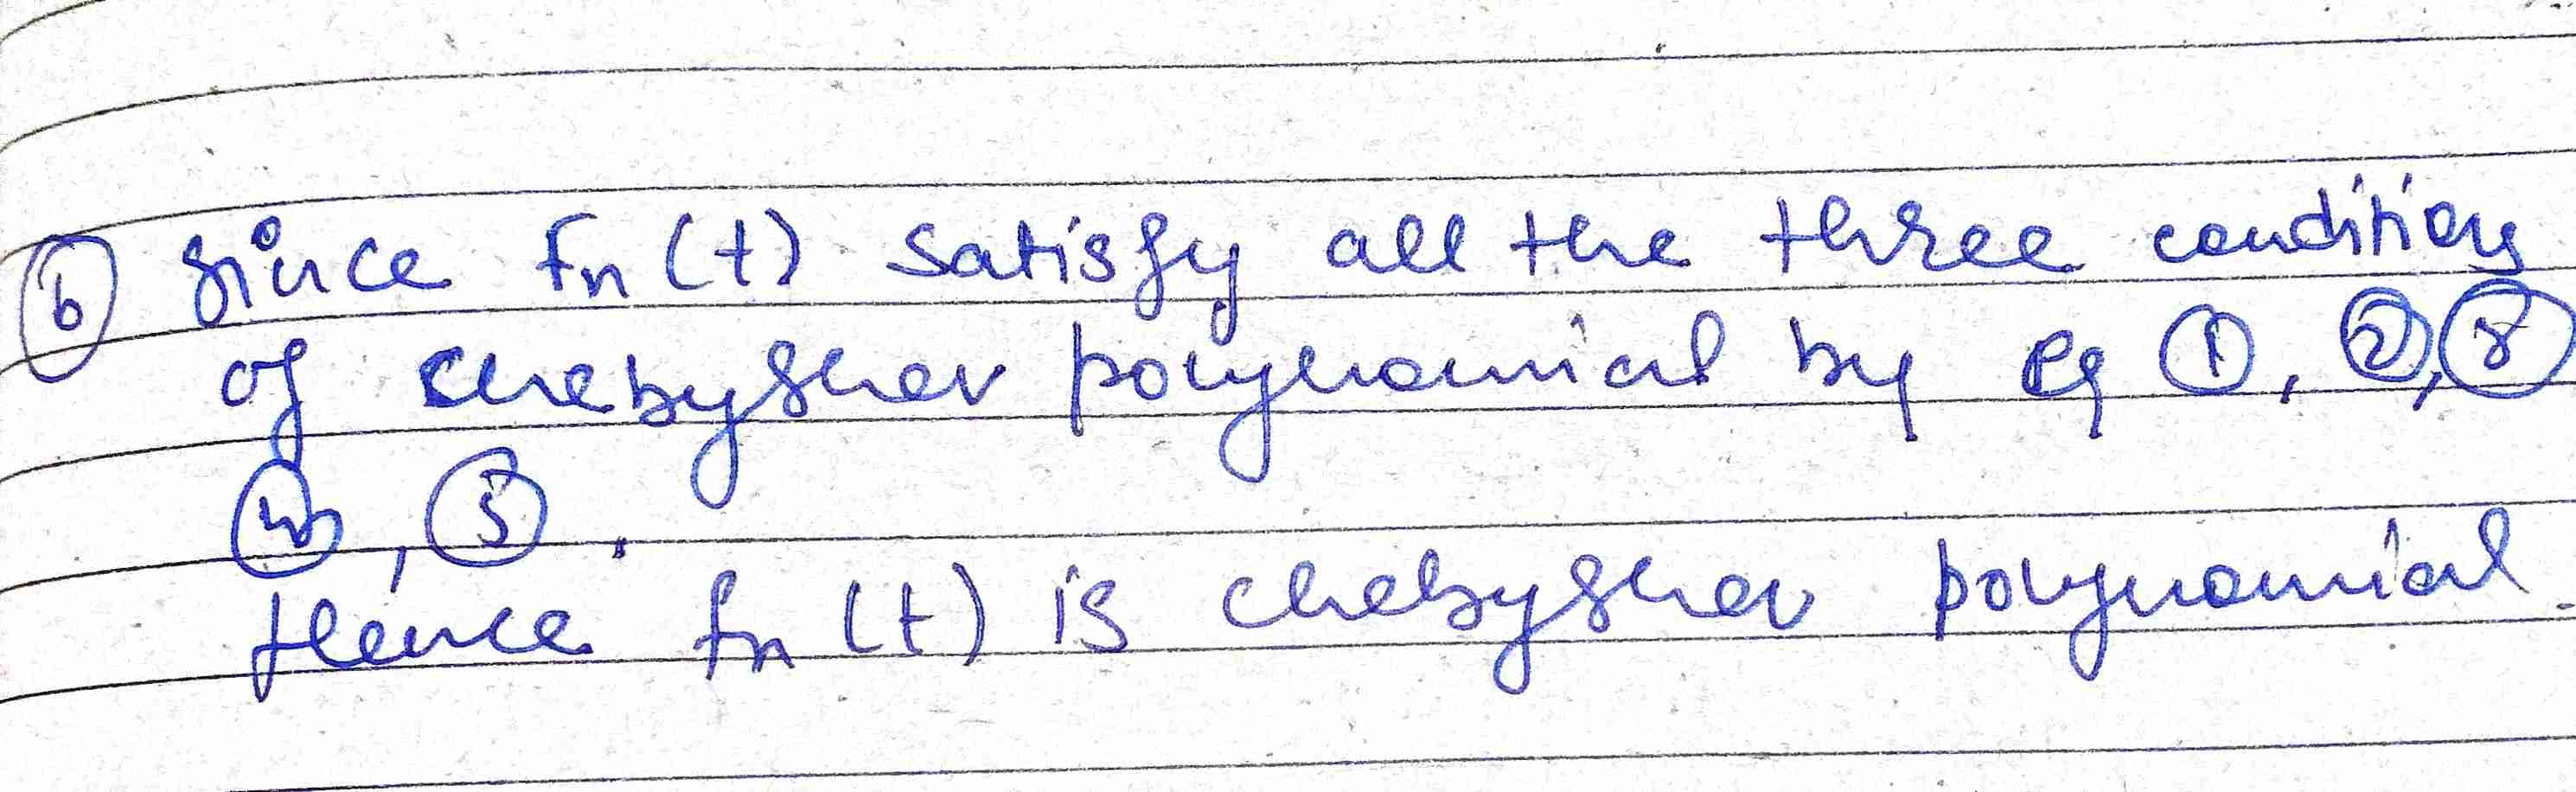 ⓑ Since fn(t) satisfy all the three conditions
of chebyshev polynomial by eq ①, ②, ③
④, ⑤.
Hence fn(t) is chebyshev polynomial.